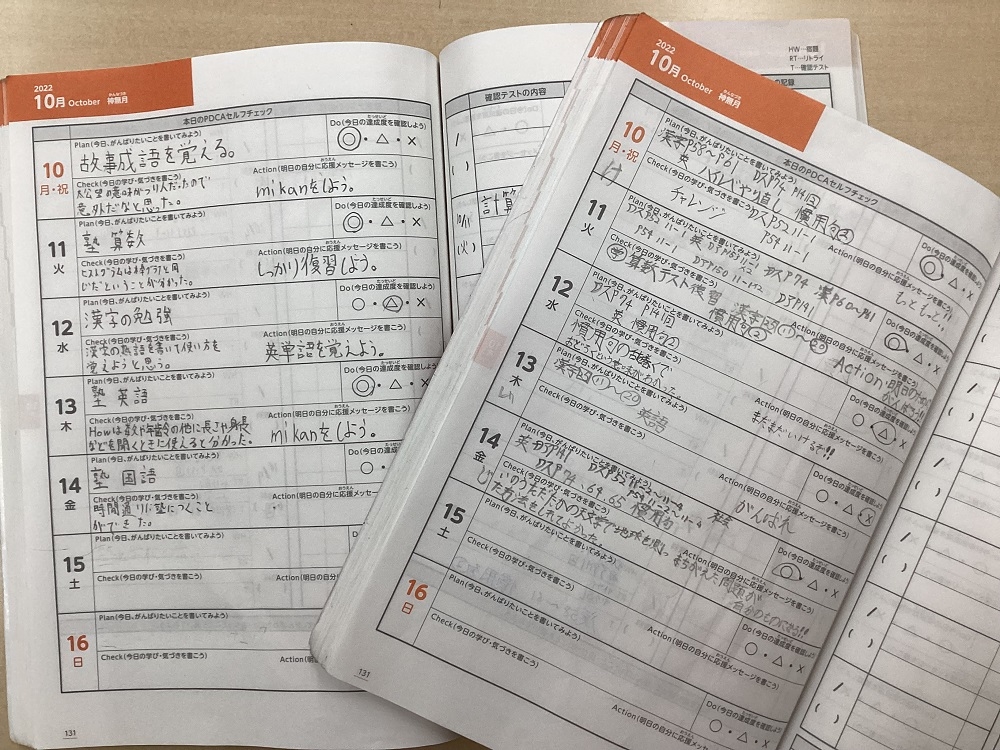 2022
10月 October 神無月
かんなづき
本日のPDCAセルフチェック
10
月・祝
Plan(今日、がんばりたいことを書いてみよう)
故事成語を覚える。
Do(今日の達成度を確認しよう)
◎・△・×
Check(今日の学び・気づきを書こう)
太公望の意味がつり人だったので
意外だなと思った。
Action(明日の自分に応援メッセージを書こう)
mikanをしよう。
11
火
Plan(今日、がんばりたいことを書いてみよう)
塾 算数
Do(今日の達成度を確認しよう)
◎・△・×
Check(今日の学び・気づきを書こう)
ヒストグラムは棒グラフと同
じだということが分かった。
Action(明日の自分に応援メッセージを書こう)
しっかり復習しよう。
12
水
Plan(今日、がんばりたいことを書いてみよう)
漢字の勉強
Do(今日の達成度を確認しよう)
○・△・×
Check(今日の学び・気づきを書こう)
漢字の熟語を書いて使い方を
覚えようと思う。
Action(明日の自分に応援メッセージを書こう)
英単語を覚えよう。
13
木
Plan(今日、がんばりたいことを書いてみよう)
塾 英語
Do(今日の達成度を確認しよう)
◎・△・×
Check(今日の学び・気づきを書こう)
Howは数や年齢の他に長さや身長
などを聞くときに使えると分かった。
Action(明日の自分に応援メッセージを書こう)
mikanをしよう。
14
金
Plan(今日、がんばりたいことを書いてみよう)
塾 国語
Do(今日の
○・
Check(今日の学び・気づきを書こう)
時間通りに塾につくこと
ができた。
Action(明日の自分に
15
土
Plan(今日、がんばりたいことを書いてみよう)
Check(今日の学び・気づきを書こう)
16
日
Plan(今日、がんばりたいことを書いてみよう)
Check(今日の学び・気づきを書こう)
Action(明
131
確認テストの内容
計算
10/11
(火)
HW…宿題
RT…リトライ
T…確認テスト
の記録
2022
10月 October 神無月
かんなづき
本日のPDCAセルフチェック
10
月・祝
Plan(今日、がんばりたいことを書いてみよう)
Check(今日の学び・気づきを書こう)
チャレンジ
Action(明日の自分に応援メッセージを書こう)
もっともっと!!
11
火
Plan(今日、がんばりたいことを書いてみよう)
Check(今日の学び・気づきを書こう)
算数テスト復習
Action(明日の自分に応援メッセージを書こう)
12
水
Plan(今日、がんばりたいことを書いてみよう)
DSP74 P14回
英 慣用句2
Check(今日の学び・気づきを書こう)
Action(明日の自分に応援メッセージを書こう)
まだまだいけるぞ!!
13
木
Plan(今日、がんばりたいことを書いてみよう)
英語
Check(今日の学び・気づきを書こう)
Action(明日の自分に応援メッセージを書こう)
がんばれ
14
金
Plan(今日、がんばりたいことを書いてみよう)
Check(今日の学び・気づきを書こう)
いのうただたかの天文学で地球を測っ
Action(明日の自分に応援メッセージを書こう)
まちがえた問題が
自分のものになる!!
15
土
Plan(今日、がんばりたいことを書いてみよう)
Check(今日の学び・気づきを書こう)
Action(明日の自分に応援メッセージを書こう)
○・△・×
16
日
Plan(今日、がんばりたいことを書いてみよう)
Check(今日の学び・気づきを書こう)
Action(明日の自分に応援メッセージを書こう)
Do(今日の達成度を確認しよう)
○・△・×
131